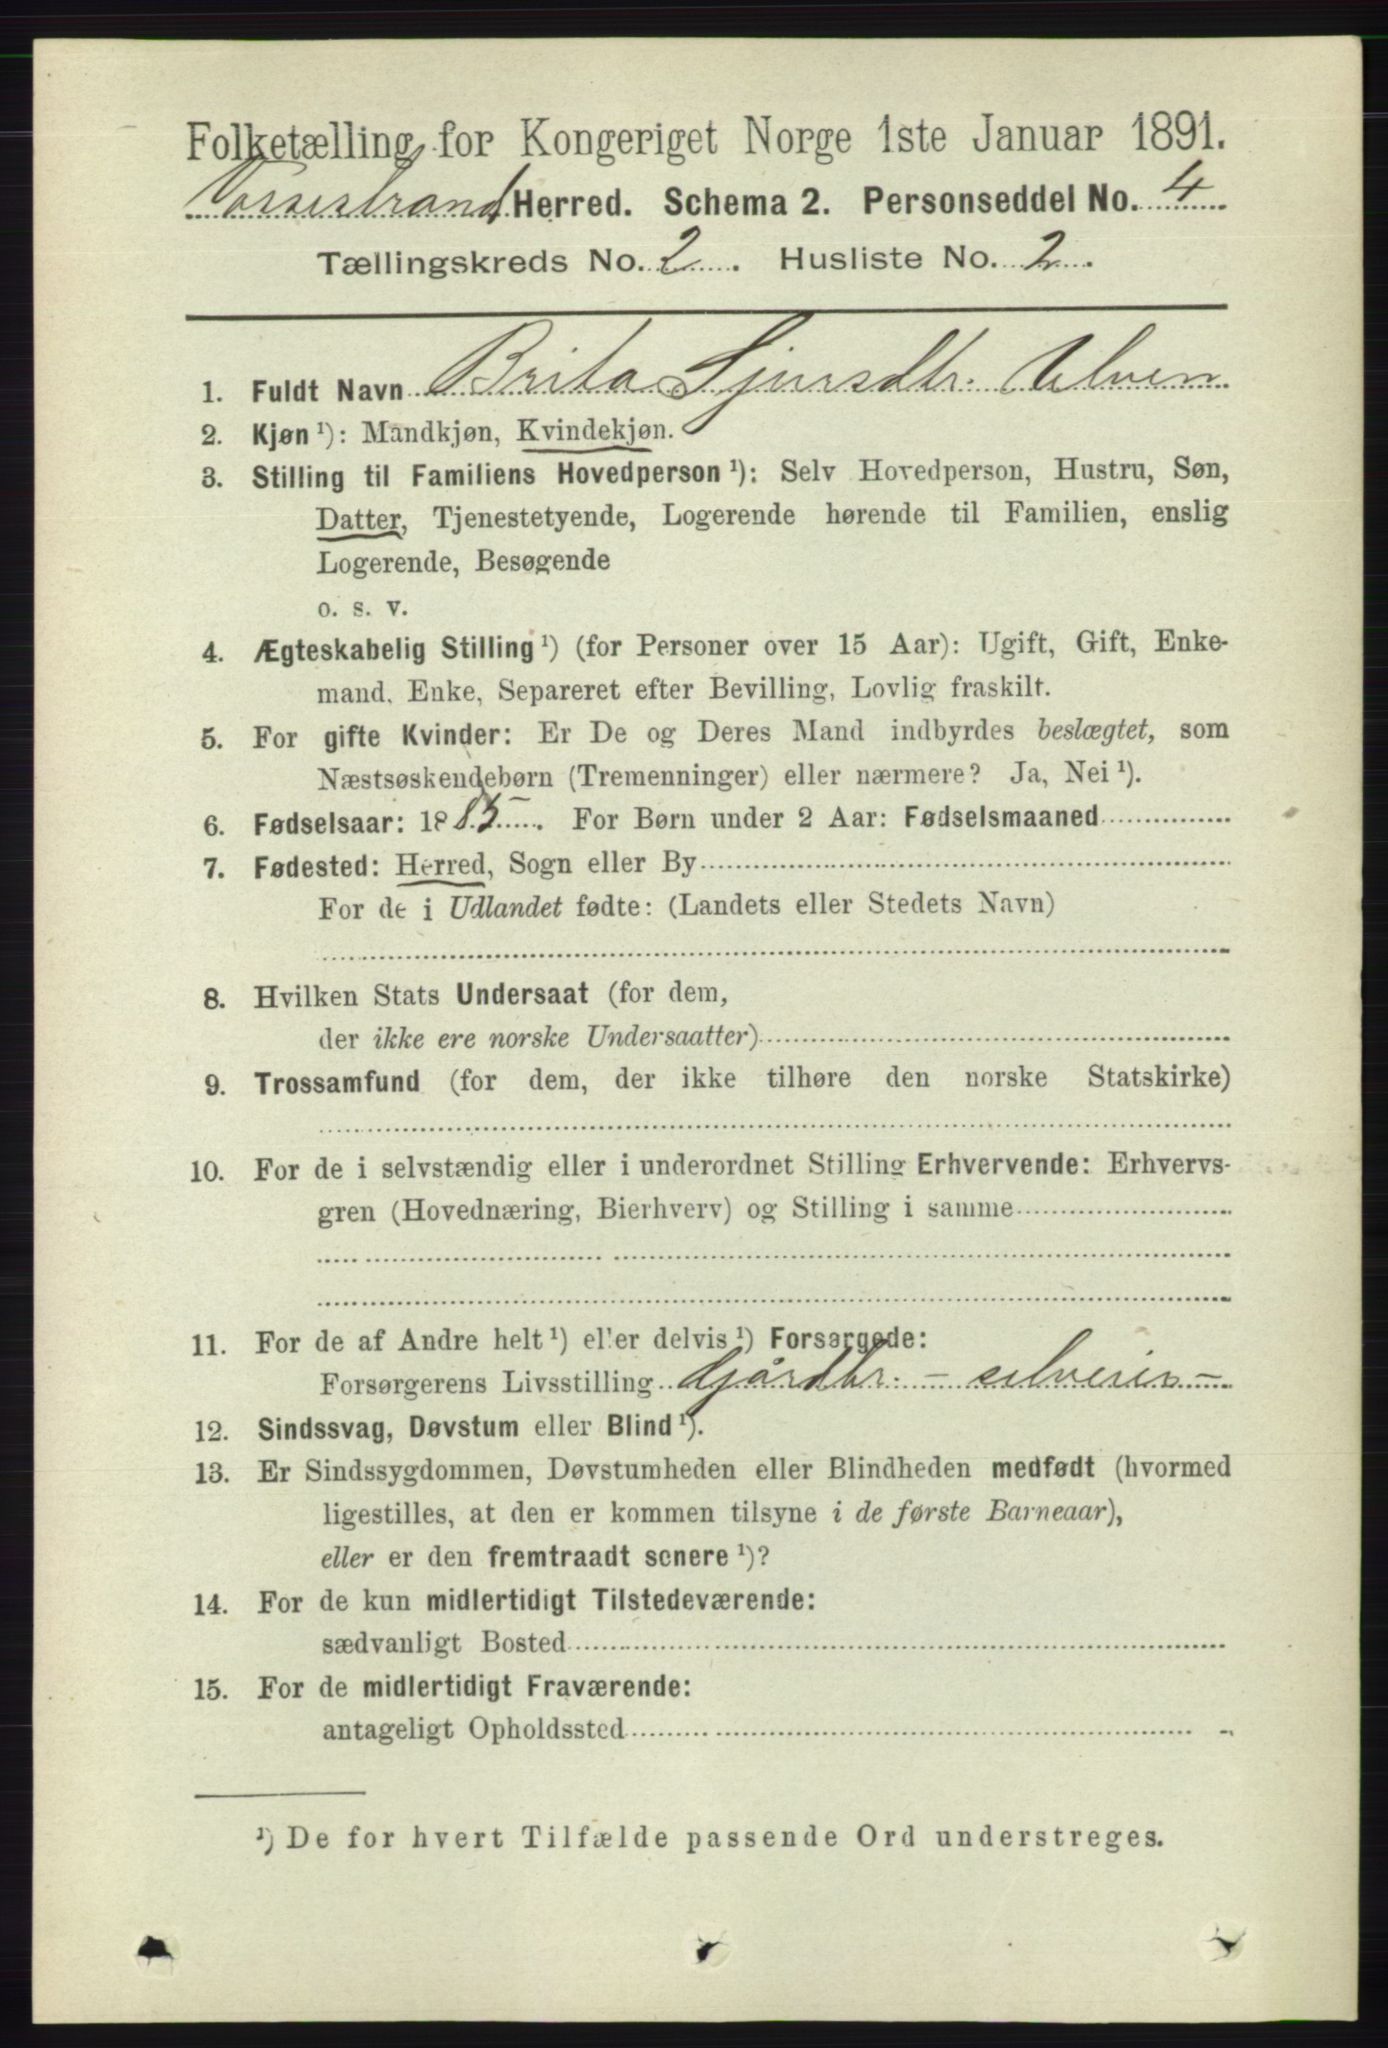 Folketælling for Kongeriget Norge 1ste Januar 1891.
Vossestrand Herred. Schema 2. Personseddel No. 4
Tællingskreds No. 2. Husliste No. 2.
1. Fuldt Navn Brita Sjursdtr. Ulven
2. Kjøn ¹): Mandkjøn, Kvindekjøn.
3. Stilling til Familiens Hovedperson ¹): Selv Hovedperson, Hustru, Søn,
Datter, Tjenestetyende, Logerende hørende til Familien, enslig
Logerende, Besøgende
o. s. v.
4. Ægteskabelig Stilling ¹) (for Personer over 15 Aar): Ugift, Gift, Enke-
mand, Enke, Separeret efter Bevilling, Lovlig fraskilt.
5. For gifte Kvinder: Er De og Deres Mand indbyrdes beslægtet, som
Næstsøskendebørn (Tremenninger) eller nærmere? Ja, Nei ¹).
6. Fødselsaar: 1885. For Børn under 2 Aar: Fødselsmaaned
7. Fødested: Herred, Sogn eller By
For de i Udlandet fødte: (Landets eller Stedets Navn)
8. Hvilken Stats Undersaat (for dem,
der ikke ere norske Undersaatter)
9. Trossamfund (for dem, der ikke tilhøre den norske Statskirke)
10. For de i selvstændig eller i underordnet Stilling Erhvervende: Erhvervs-
gren (Hovednæring, Bierhverv) og Stilling i samme
11. For de af Andre helt ¹) eller delvis ¹) Forsørgede:
Forsørgerens Livsstilling Gjårdbr. – selveier –
12. Sindssvag, Døvstum eller Blind ¹).
13. Er Sindssygdommen, Døvstumheden eller Blindheden medfødt (hvormed
ligestilles, at den er kommen tilsyne i de første Barneaar),
eller er den fremtraadt senere ¹)?
14. For de kun midlertidigt Tilstedeværende:
sædvanligt Bosted
15. For de midlertidigt Fraværende:
antageligt Opholdssted
¹) De for hvert Tilfælde passende Ord understreges.